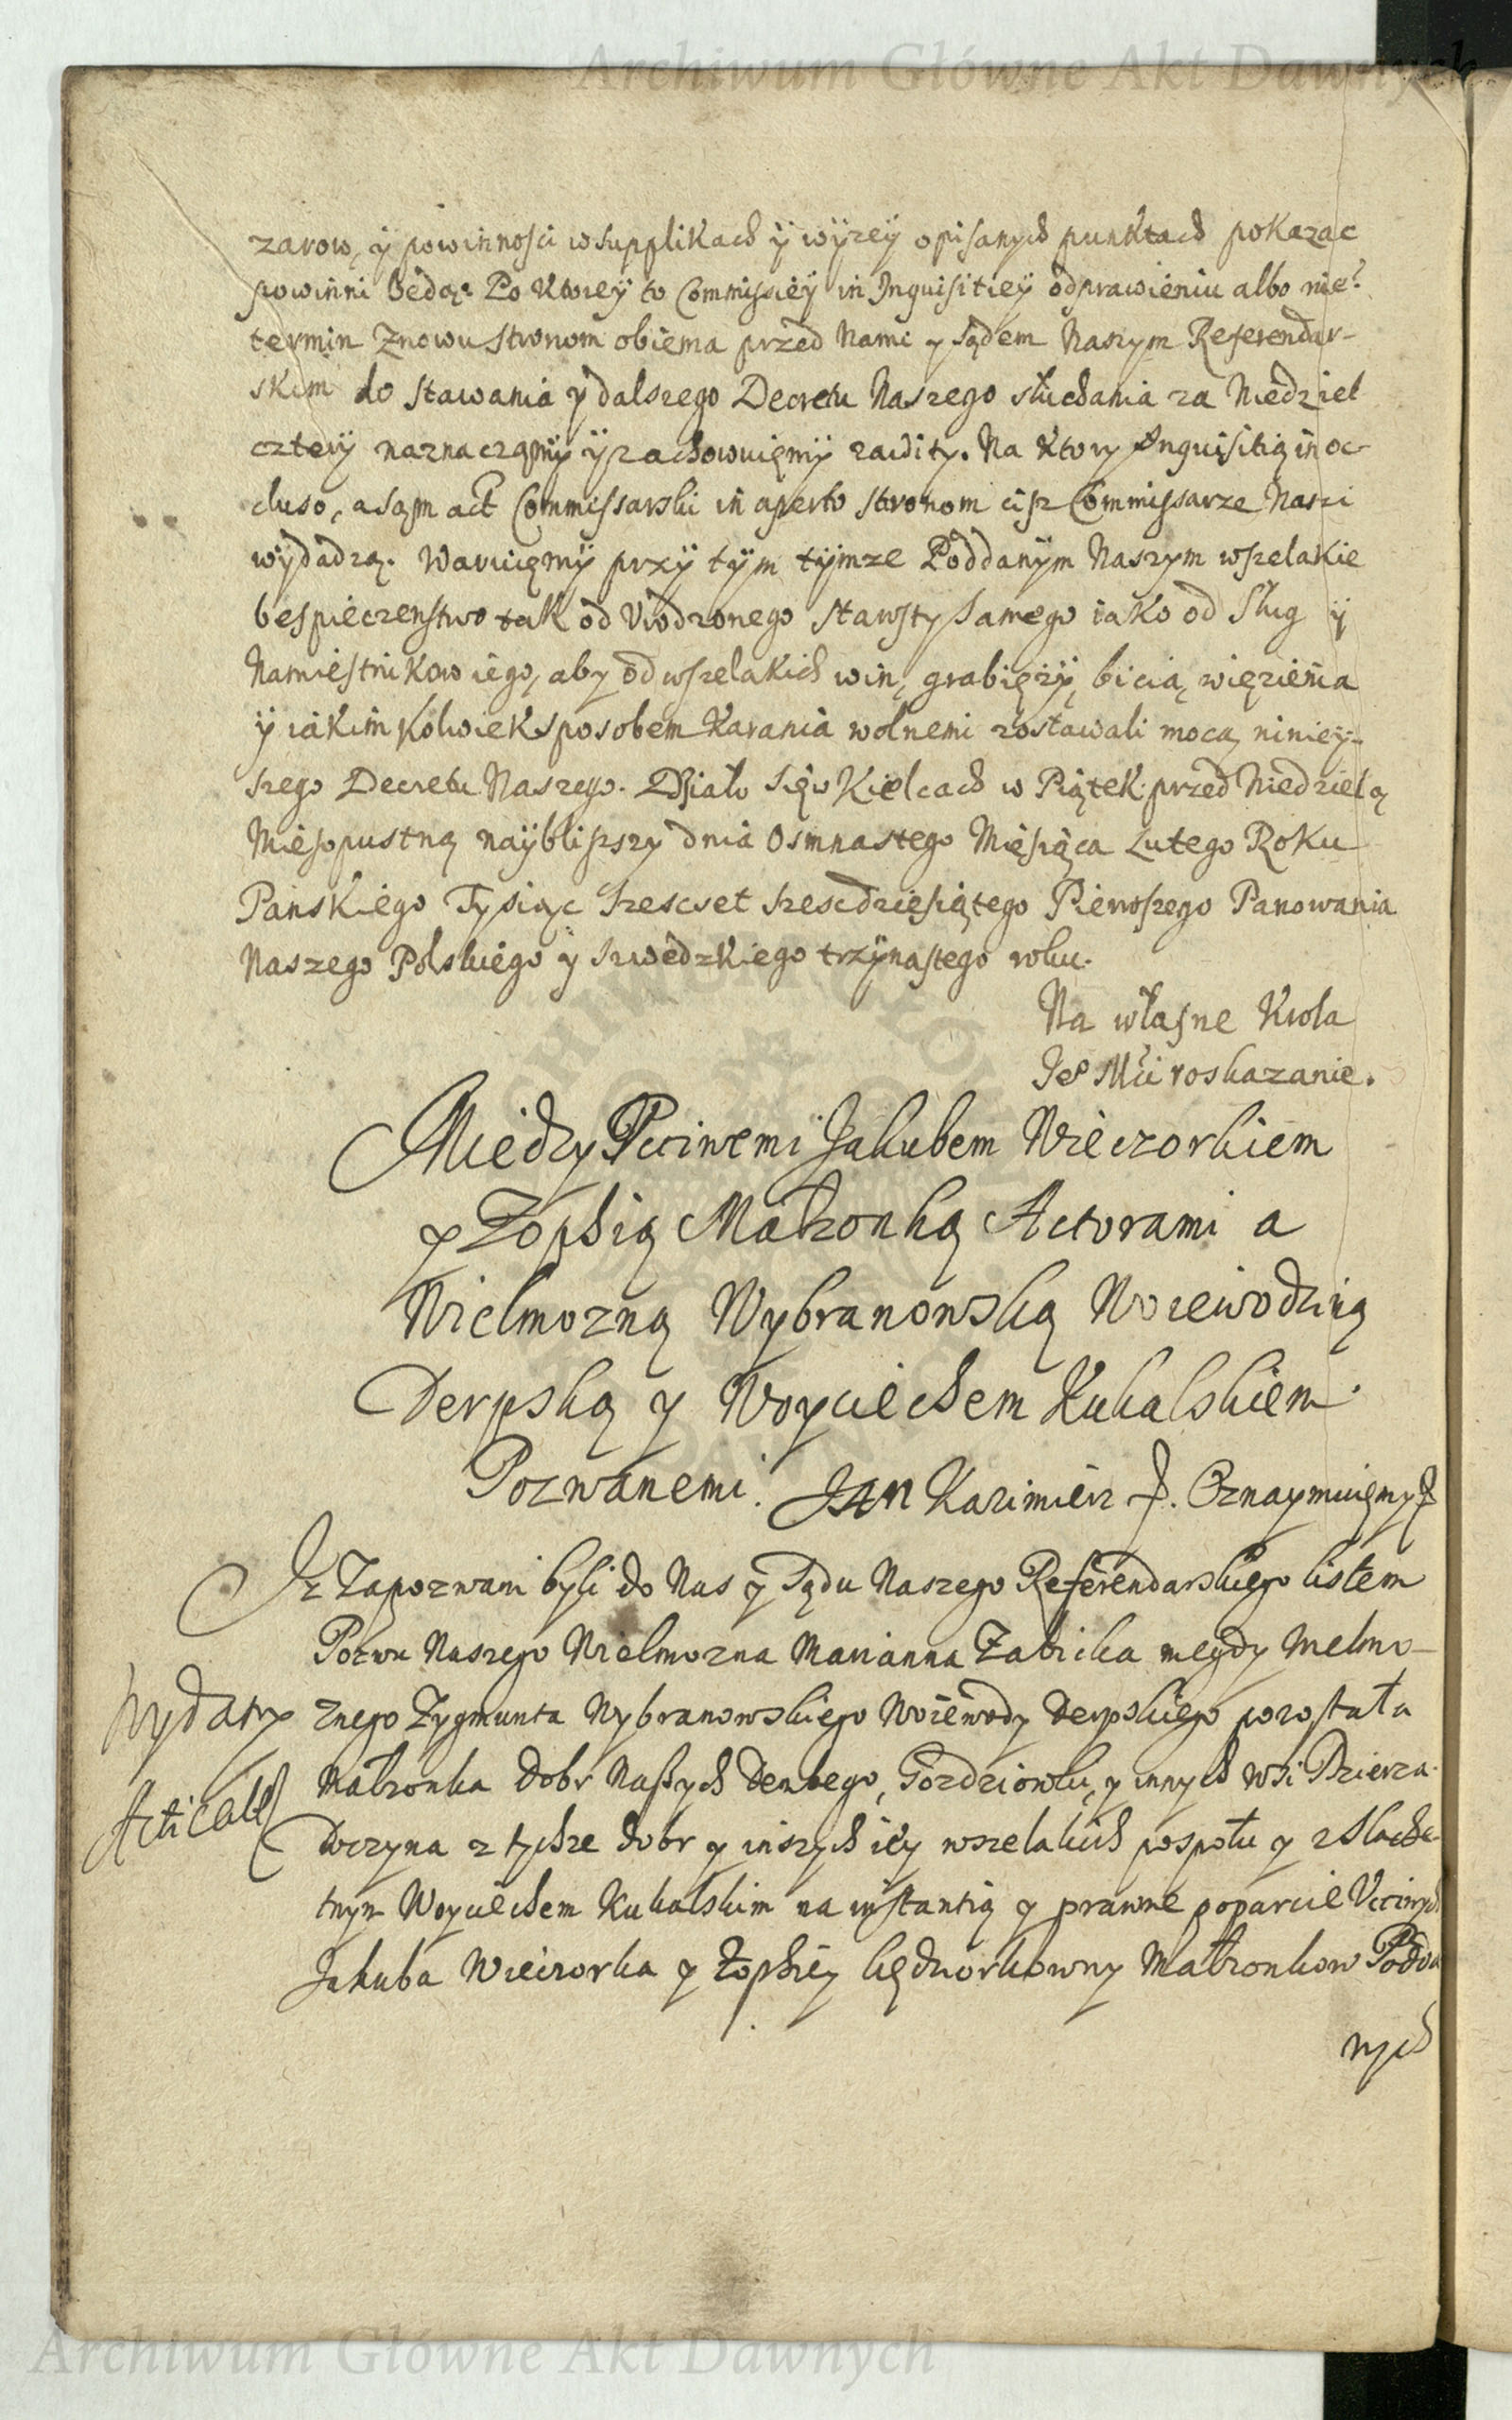 Archiwum Główne Akt Dawnych
zarow, ÿ powinnosci w supplikach ÿ wÿzeÿ opisanych punktach pokazac
powinni będą. Po ktoreÿ to Commissieÿ in Inquisitieÿ odprawieniu albo nie?
termin znowu stronom obiema przed Nami y sądem Naszym Referendar-
skim do stawania y dalszego Decretu Naszego słuchania za Niedziel
czterÿ naznaczamÿ ÿ zachowuięmÿ zawity. Na ktory Inquisitią in oc-
cluso, a sąm act Commissarski in aperto stronom ciss Commissarze Nasi
wÿdadzą. Waruięmÿ przÿ tÿm tÿmze Poddanÿm Naszym wszelakie
bespieczenstwo tak od Vrodzonego Starosty samego iako od Sług ÿ
Namiestnikow iego, aby od wszelakich win, grabięzÿ, bicia, więzienia
ÿ iakimkolwiek sposobem karania wolnemi zostawali mocą niniey-
szego Decretu Naszego. Działo się w Kielcach w Piątek przed Niedzielą
Mięsopustną naÿblizszy dnia Osmnastego Miesiąca Lutego Roku
Panskiego Tysiąc szescset szescdziesiątego Pierwszego Panowania
Naszego Polskiego y Szwedzkiego trzÿnastego roku.
Na własne Krola
Je° Mći roskazanie.
Między Pcciwemi Jakubem Wieczorkiem
y Zophią Małzonką Actorami a
Wielmozną Wybranowską Woiewodziną
Derpską y Woyciechem Kukalskiem
Pozwanemi. Jan Kazimierz &. Oznaymuięmy &
Iz Zapozwani byli do Nas y Sądu Naszego Referendarskiego listem
Pozwu Naszego Wielmozna Marianna Zabicka niegdy Wielmo-
wydany znego Zygmunta Wybranowskiego Woiewody Derpskiego pozostała
Acticatt Małzonka dobr Naszych Dembego, Gozdziowku, y innych wsi Dzierza-
wczyna z tychze dobr y inszych iey wszelakich pospołu y z Slache-
tnym Woyciechem Kukalskim na instantią y prawne poparcie Vcciwych
Jakuba Wieczorka y Zophiey Kędziorkowny Małzonkow Podda
nych
Archiwum Główne Akt Dawnych